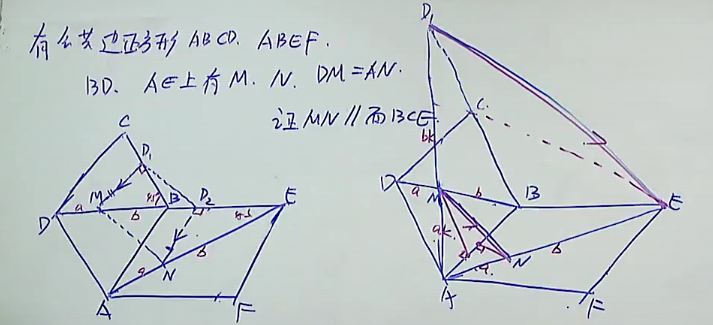 有公共边正方形 ABCD. ABEF.
BD. AE上有 M. N. DM=AN.
证 MN // 面BCE.
C
D₁
M
a
b
45°
B
D₂
45
E
D
a
N
b
A
F
D₁
C
bk
D
a
M
b
B
E
ak
a
N
b
A
F